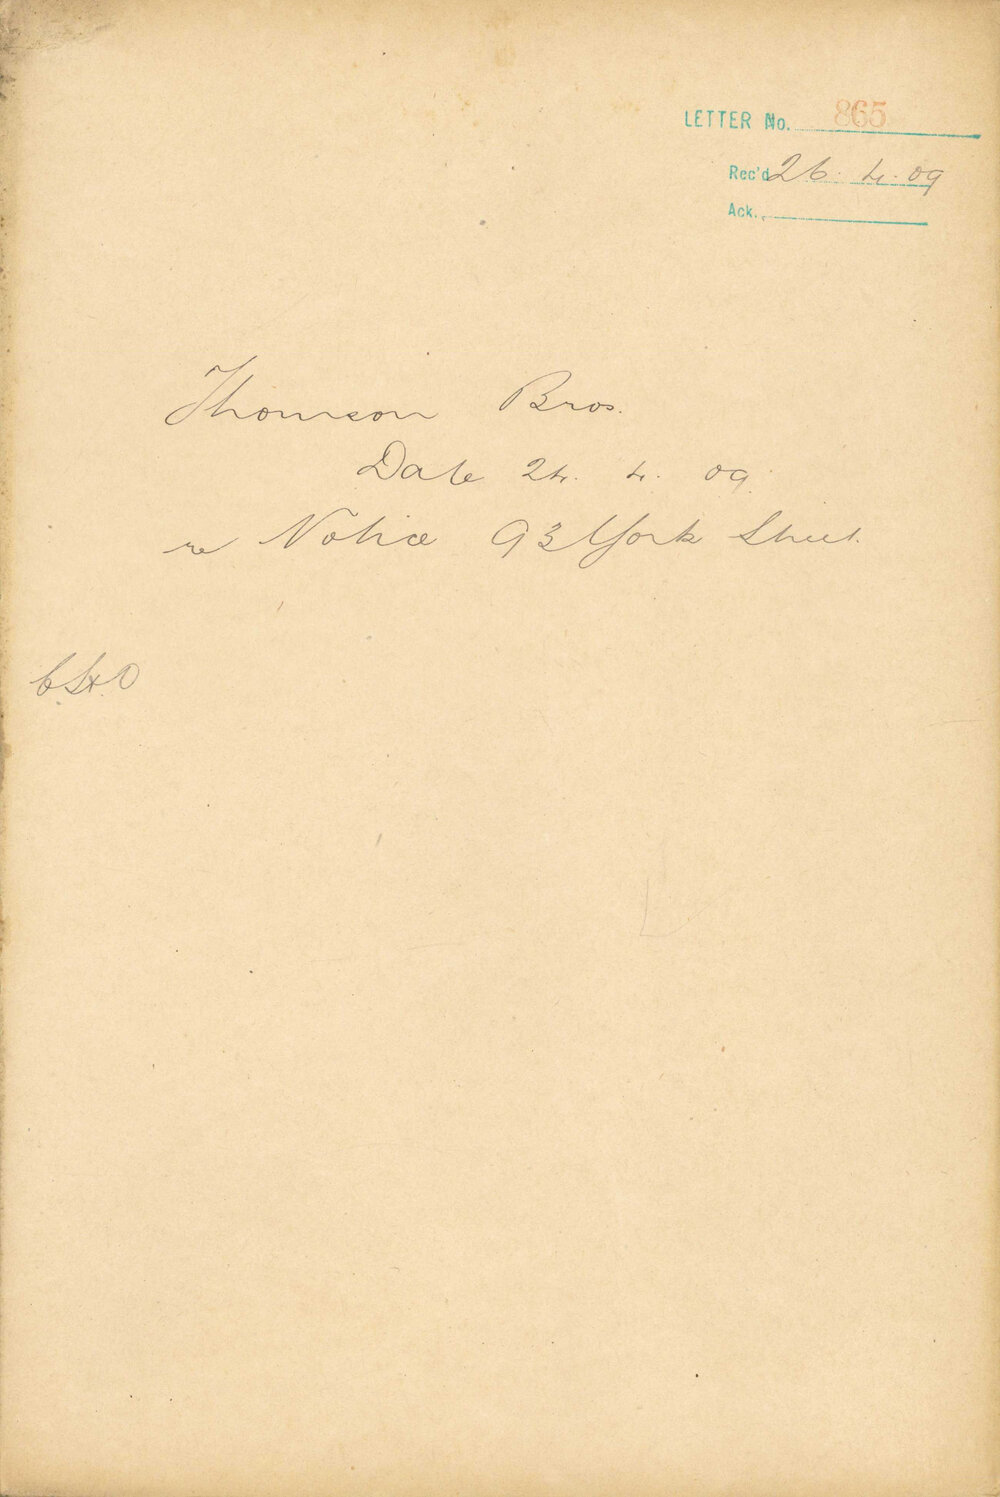 LETTER No. 865
Rec'd 26. 4. 09
Ack.
Thomson Bros.
Date 24. 4. 09.
re Notice 93 York Street.